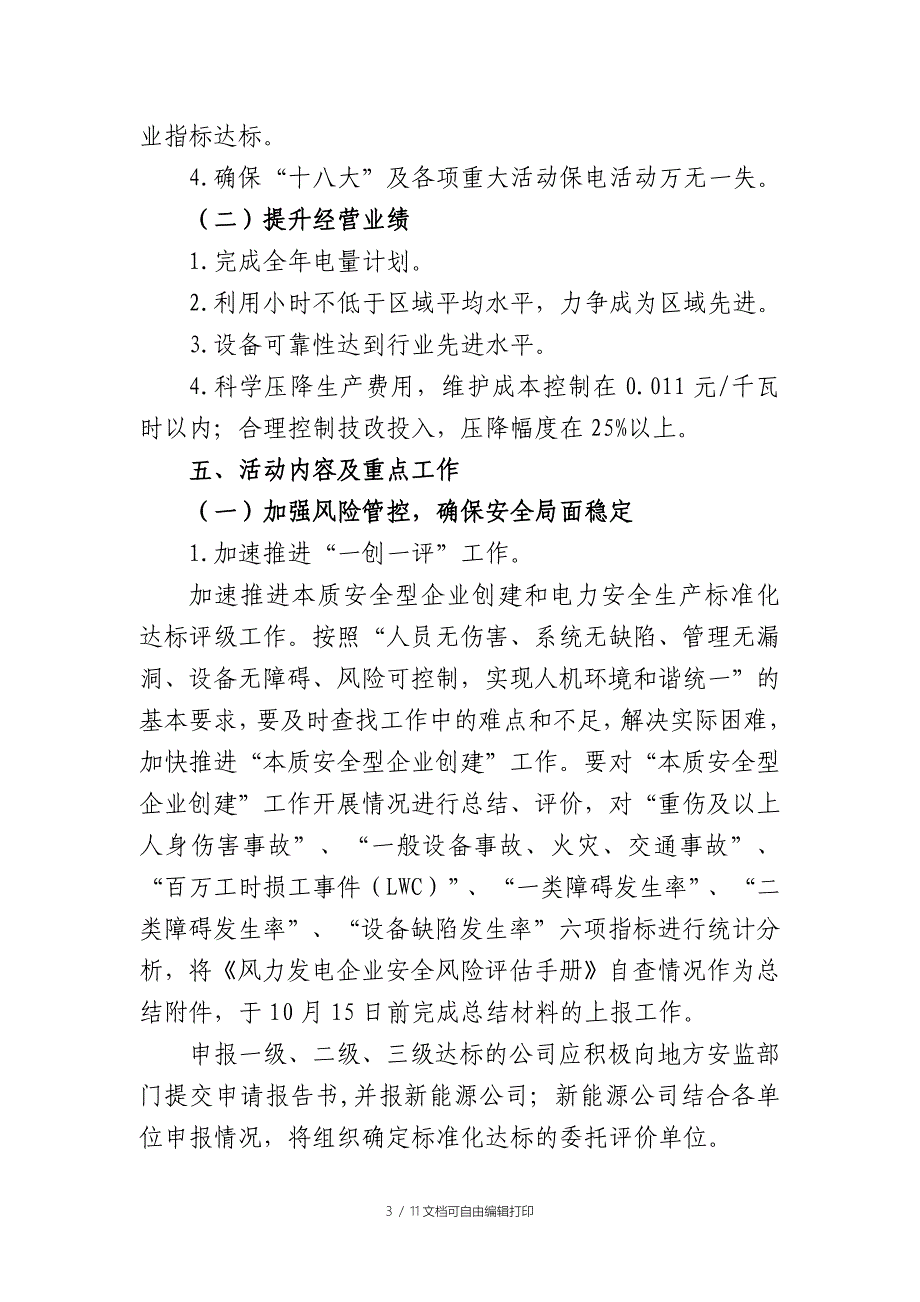 业指标达标。
4.确保“十八大”及各项重大活动保电活动万无一失。
（二）提升经营业绩
1.完成全年电量计划。
2.利用小时不低于区域平均水平，力争成为区域先进。
3.设备可靠性达到行业先进水平。
4.科学压降生产费用，维护成本控制在 0.011 元/千瓦
时以内；合理控制技改投入，压降幅度在 25%以上。
五、活动内容及重点工作
（一）加强风险管控，确保安全局面稳定
1.加速推进“一创一评”工作。
加速推进本质安全型企业创建和电力安全生产标准化
达标评级工作。按照“人员无伤害、系统无缺陷、管理无漏
洞、设备无障碍、风险可控制，实现人机环境和谐统一”的
基本要求，要及时查找工作中的难点和不足，解决实际困难，
加快推进“本质安全型企业创建”工作。要对“本质安全型
企业创建”工作开展情况进行总结、评价，对“重伤及以上
人身伤害事故”、“一般设备事故、火灾、交通事故”、
“百万工时损工事件（LWC）”、“一类障碍发生率”、“二
类障碍发生率”、“设备缺陷发生率”六项指标进行统计分
析，将《风力发电企业安全风险评估手册》自查情况作为总
结附件，于 10 月 15 日前完成总结材料的上报工作。
申报一级、二级、三级达标的公司应积极向地方安监部
门提交申请报告书,并报新能源公司；新能源公司结合各单
位申报情况，将组织确定标准化达标的委托评价单位。
3 / 11文档可自由编辑打印